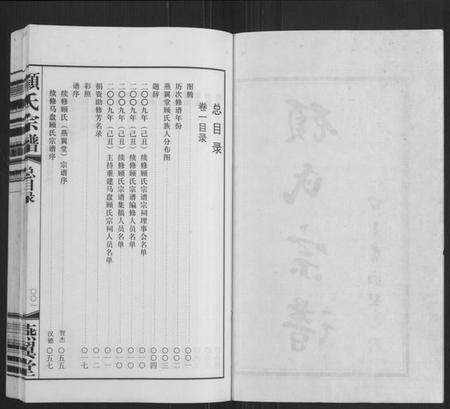 总目录
卷一目录
图腾 〇〇一
历次修谱年份 〇〇二
燕翼堂顾氏族人分布图 〇〇三
题辞 〇〇四
二〇〇九年(己丑)续修顾氏宗谱宗祠理事会名单 〇一〇
二〇〇九年(己丑)续修顾氏宗谱编修人员名单 〇一〇
二〇〇九年(己丑)续修顾氏宗谱集稿人员名单 〇一〇
二〇〇九年(己丑)主持重建马盘顾氏宗祠人员名单 〇一一
捐资助修芳名录 〇一二
彩照 〇一七
谱序
续修顾氏(燕翼堂)宗谱序 智杰 〇五五
续修马盘顾氏宗谱序 汉德 〇五七
顾氏宗谱
总目录
〇〇一
燕翼堂
顾氏宗谱